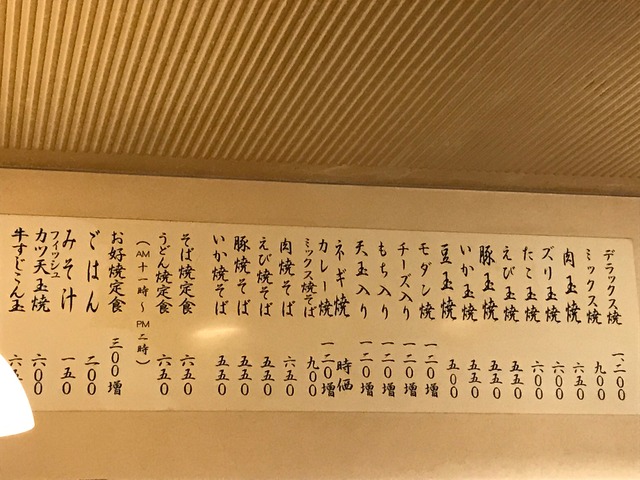 デラックス焼 一、二〇〇
ミックス焼 九〇〇
肉玉焼 六五〇
ズリ玉焼 六〇〇
たこ玉焼 六〇〇
えび玉焼 五五〇
豚玉焼 五五〇
いか玉焼 五五〇
豆玉焼 五〇〇
モダン焼 一二〇増
チーズ入り 一二〇増
もち入り 一二〇増
天玉入り 一二〇増
ネギ焼 時価
カレー焼 一二〇増
ミックス焼そば 九〇〇
肉焼そば 六五〇
えび焼そば 五五〇
豚焼そば 五五〇
いか焼そば 五五〇
そば焼定食 六五〇
うどん焼定食 六五〇
(AM十一時〜PM二時)
お好焼定食 三〇〇増
ごはん 二〇〇
みそ汁 一五〇
フィッシュ
カツ天玉焼 六〇〇
牛すじこん玉